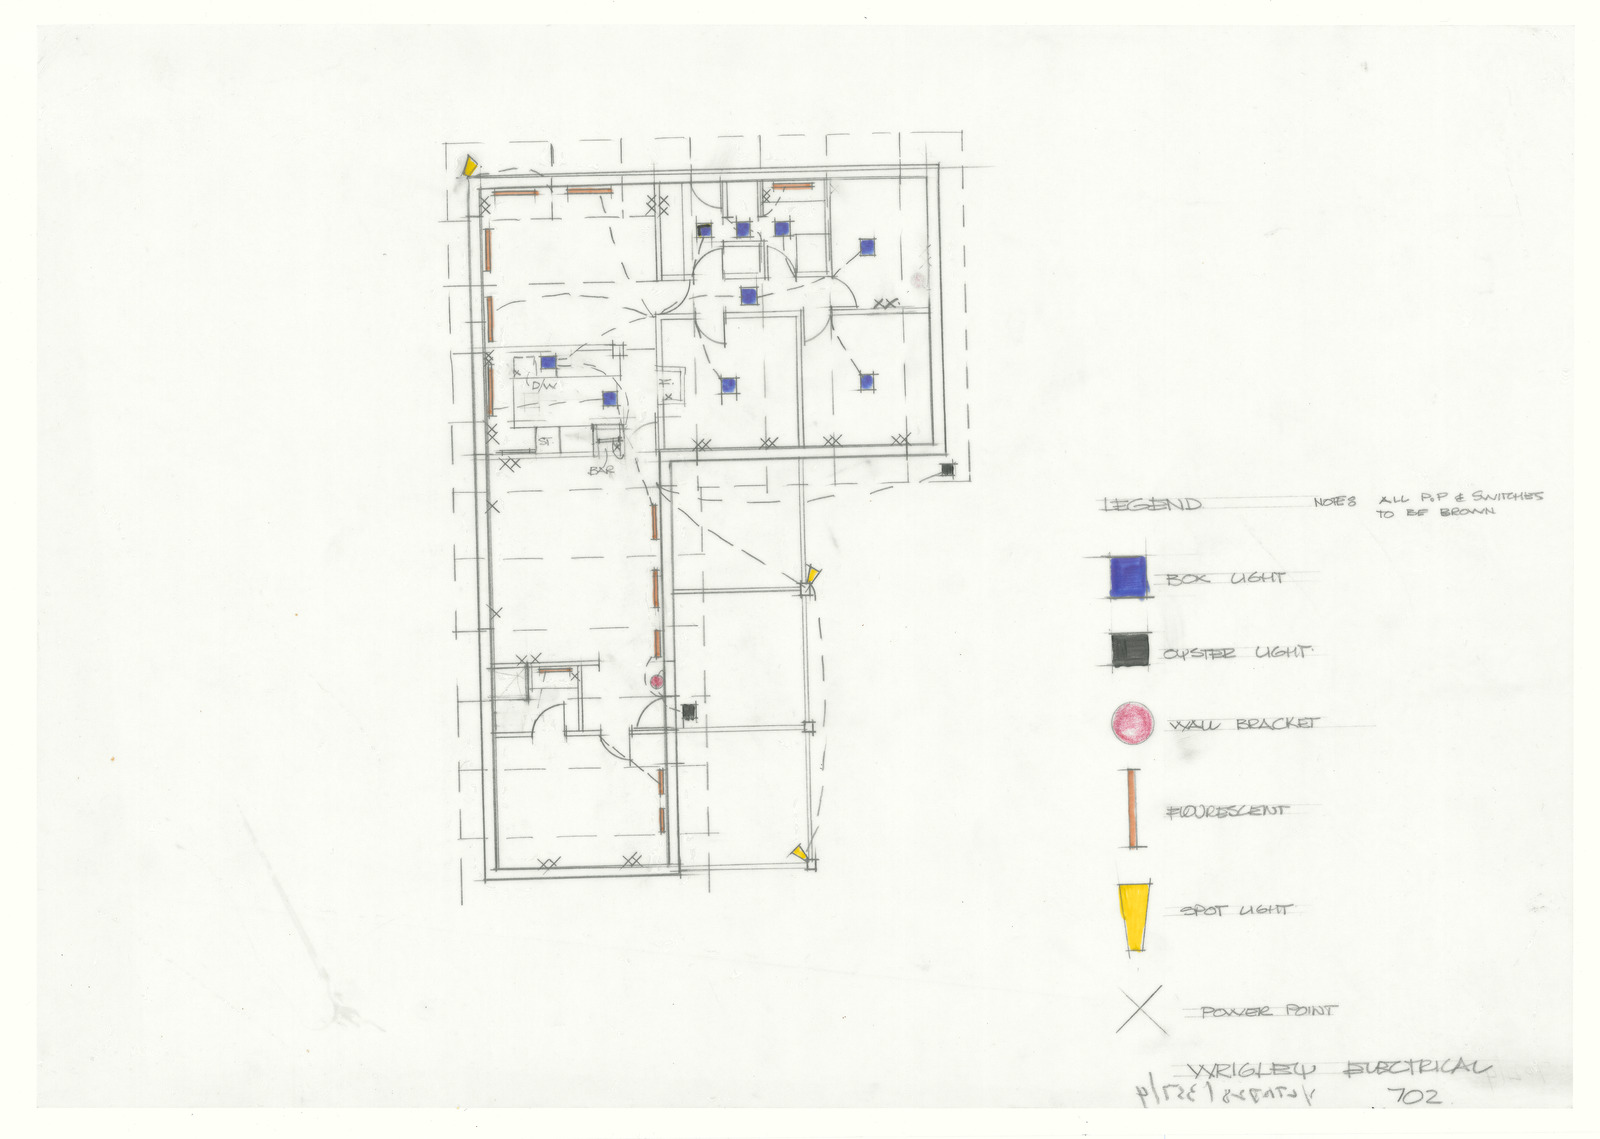 D/W
ST.
BAR
LEGEND
NOTES ALL P.P & SWITCHES
TO BE BROWN
BOX LIGHT
OYSTER LIGHT
WALL BRACKET
FLOURESCENT
SPOT LIGHT
POWER POINT
WRIGLEY ELECTRICAL
702